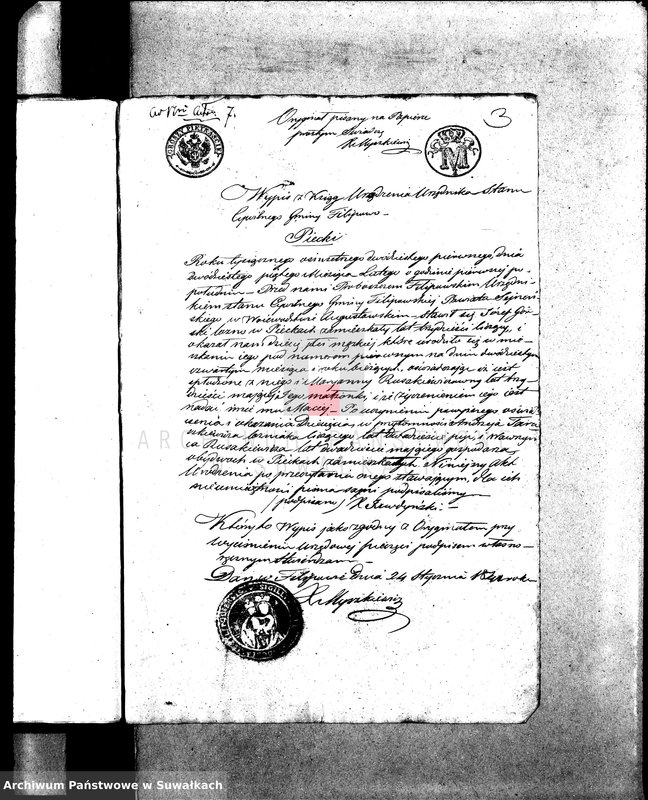 7.
Orygniał pisany na Papierze
3
M
Wypis z Xiąg Urodzenia Urzędnika Stanu
Cywilnego Gminy Filipowa
Piecki
Roku tysiącznego ośmsetnego dwudziestego pierwszego, dnia
dwudziestego piątego Miesiąca Lutego o godzinie pierwszej po
południu — Przed nami Proboszczem Filipowskim Urzędni-
kiem stanu Cywilnego Gminy Filipowskiej Powiatu Sejneń-
skiego w Województwie Augustowskim — Stawił się Józef Gór-
ski w Pieckach zamieszkały lat trzydzieści liczący, i
okazał nam dziecię płci męzkiej które urodziło się w mie-
szkaniu jego pod numerem pierwszym na dniu dwudziestym
czwartym miesiąca i roku bieżących, oświadczając iż jest
spłodzone z niego i Maryanny Ruszkiewiczówny lat trzy-
dzieści mającej Jego małżonki, i iż życzeniem jego jest
nadać imie mu Maciej — Po uczynieniu powyższego oświad-
czenia i okazaniu Dziecięcia w przytomności Andrzeja
liczącego lat i Wawrzyń-
ca Ruszkiewicza lat mającego gospodarza
obydwóch w Pieckach zamieszkałych. Niniejszy Akt
Urodzenia po przeczytaniu onego stawającym, dla ich
nieumiejętności pisma sami podpisaliśmy
(podpisano) X
Który to Wypis jako zgodny z Oryginałem przy
wyciśnieniu Urzędowej pieczęci podpisem własno-
ręcznym stwierdzam —
Dan w Filipowie Dnia 24 Stycznia roku
X Myszkiewicz
Archiwum Państwowe w Suwałkach